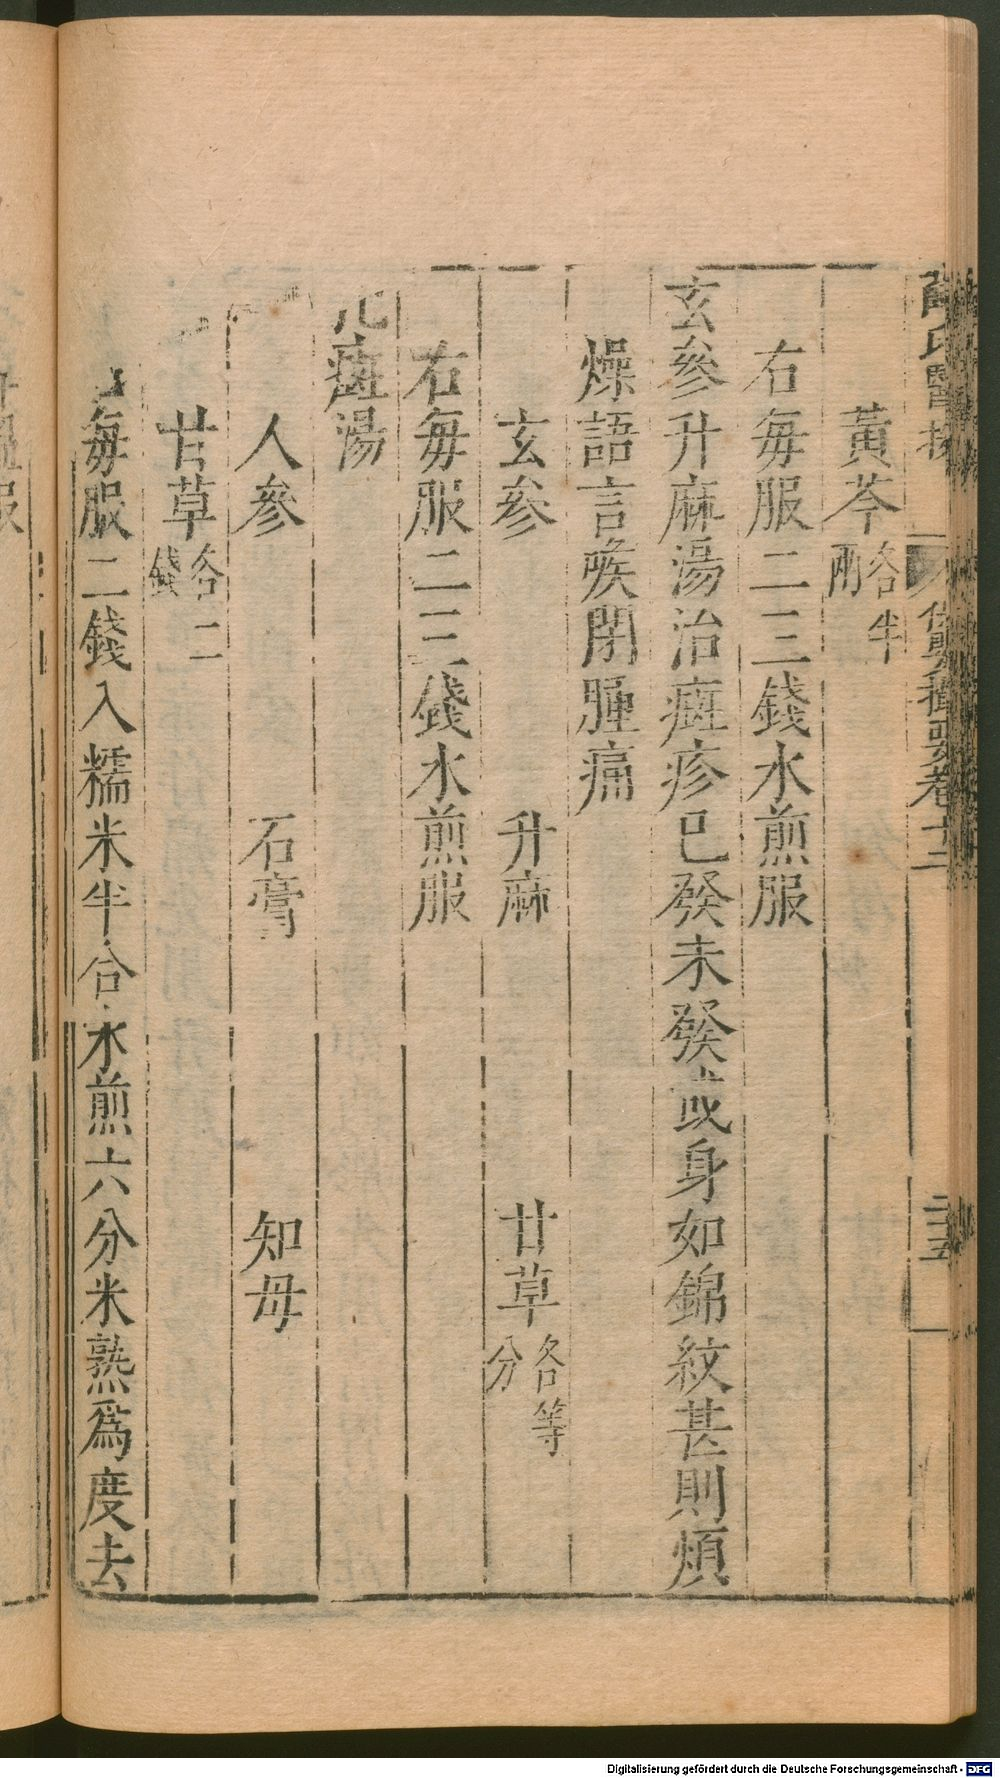 薛氏醫按 保嬰撮要卷十二 二五
黃芩各半兩
右每服二三錢水煎服
玄參升麻湯治癍疹已發未發或身如錦紋甚則煩
燥語言喉閉腫痛
玄參 升麻 甘草各等分
右每服二三錢水煎服
化癍湯
人參 石膏 知母
甘草各二錢
每服二錢入糯米半合水煎六分米熟爲度去
Digitalisierung gefördert durch die Deutsche Forschungsgemeinschaft - DFG